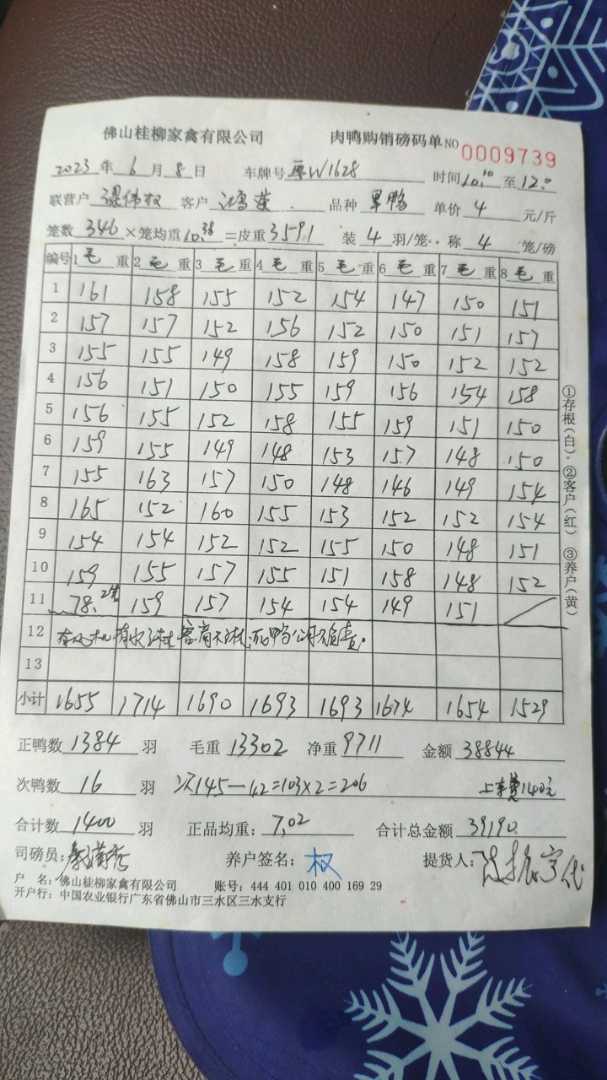 佛山桂柳家禽有限公司 肉鸭购销磅码单 NO 0009739
2023年6月8日 车牌号 W1628 时间10.10至12.0
联营户 客户 品种 单鸭 单价 4 元/斤
笼数 346 ×笼均重 10.38 =皮重 3591 装 4 羽/笼 称 4 笼/磅
编号 1 毛 重 2 毛 重 3 毛 重 4 毛 重 5 毛 重 6 毛 重 7 毛 重 8 毛 重
1 161 158 155 152 154 147 150 151
2 157 157 152 156 152 150 151 157
3 155 155 149 158 159 150 152 152
4 156 151 150 155 159 156 154 158
5 156 155 152 158 155 159 151 150
6 159 155 149 148 153 157 148 150
7 155 163 157 150 148 146 149 154
8 165 152 160 155 153 152 152 154
9 154 154 152 152 155 150 148 151
10 159 155 157 155 151 158 148 152
11 78.2笼 159 157 154 154 149 151
12
13
小计 1655 1714 1690 1693 1693 1674 1654 1529
正鸭数 1384 羽 毛重 13302 净重 9711 金额 38844
次鸭数 16 羽 次145-42=103×2=206 上车费140元
合计数 1400 羽 正品均重: 7.02 合计总金额 39190.
司磅员: 养户签名: 权 提货人:
户 名: 佛山桂柳家禽有限公司 账号: 444 401 010 400 169 29
开户行: 中国农业银行广东省佛山市三水区三水支行
①存根(白)·②客户(红) ③养户(黄)